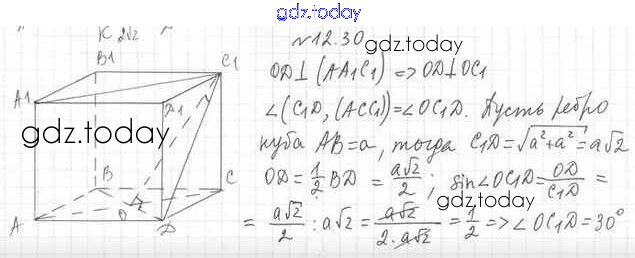 gdz.today
K 2√2
B1
C1
A1
D1
gdz.today
B
C
A
O
D
№12.30
gdz.today
OD⊥(AA1C1) => OD⊥OC1
∠(C1D, (ACC1)) = ∠OC1D. Пусть ребро
куба AB=a, тогда C1D=√a²+a² = a√2
OD = 1/2 BD = a√2/2; sin∠OC1D = OD/C1D =
gdz.today
= a√2/2 : a√2 = a√2/2·a√2 = 1/2 => ∠OC1D = 30°